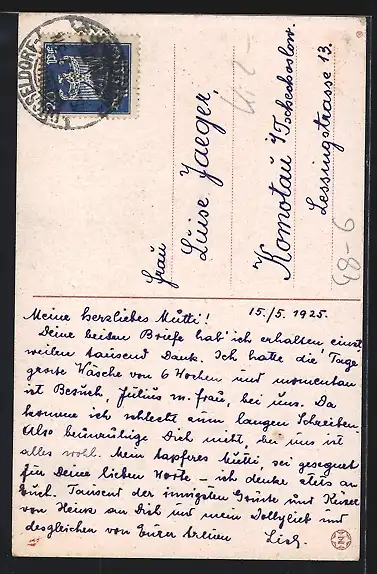 DÜSSELDORF
Frau
Luise Jaeger,
Komotau i/Tschechoslow.
Lessingstrasse 13.
48-6
Meine herzliebes Mutti! 15./5. 1925.
Deine beiden Briefe hab' ich erhalten einst
weilen tausend Dank. Ich hatte die Tage
grosse Wäsche von 6 Wochen und momentan
ist Besuch, Julius m. Frau, bei uns. Da
komme ich schlecht zum langen Schreiben.
Also beunruhige Dich nicht, bei uns ist
alles wohl. Mein tapferes Mutti, sei gesegnet
für Deine lieben Worte – ich denke stets an
Euch. Tausend der innigsten Grüsse und Küsse
von Heinz an Dich und mein Dollylieb und
desgleichen von Eurer treuen Lisl.